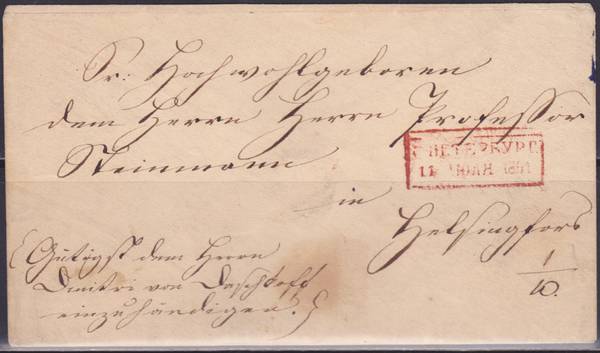 Sr: Hochwohlgeboren
dem Herrn Herrn Professor
Steinmann
С ПЕТЕРБУРГ
11 1851
in
Helsingfors
(Gütigst dem Herrn
Dmitri von Daschkoff
einzuhändigen.)
1
10.